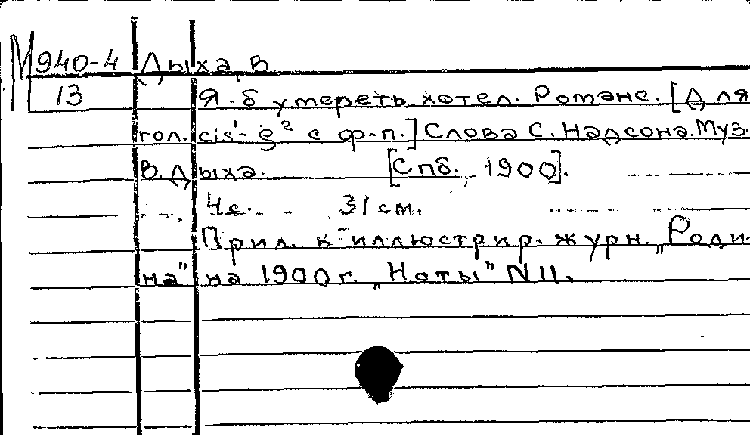 М940-4 Дыха, В.
13 Я б умереть хотел. Романс. [Для
гол. cis'- g² с ф-п.] Слова С. Надсона. Муз.
В. Дыха. [Спб., 1900].
4 с. 31 см.
Прил. к иллюстрир. журн. „Роди-
на" на 1900 г. „Ноты" N 11.